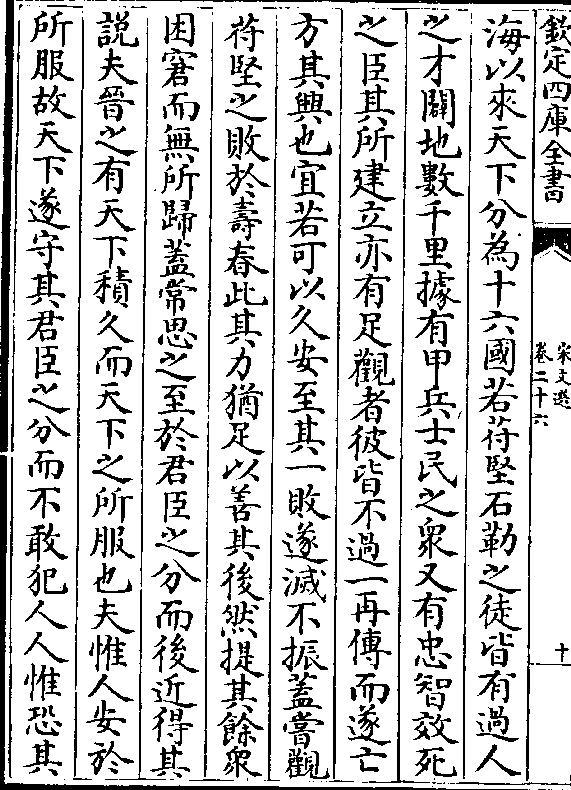 欽定四庫全書
宋文選
卷二十六
十
海以來天下分為十六國若苻堅石勒之徒皆有過人
之才闢地數千里據有甲兵士民之衆又有忠智效死
之臣其所建立亦有足觀者彼皆不過一再傳而遂亡
方其興也宜若可以久安至其一敗遂滅不振蓋嘗觀
苻堅之敗於壽春此其力猶足以善其後然提其餘衆
困窘而無所歸蓋常思之至於君臣之分而後近得其
說夫晉之有天下積久而天下之所服也夫惟人安於
所服故天下遂守其君臣之分而不敢犯人人惟恐其